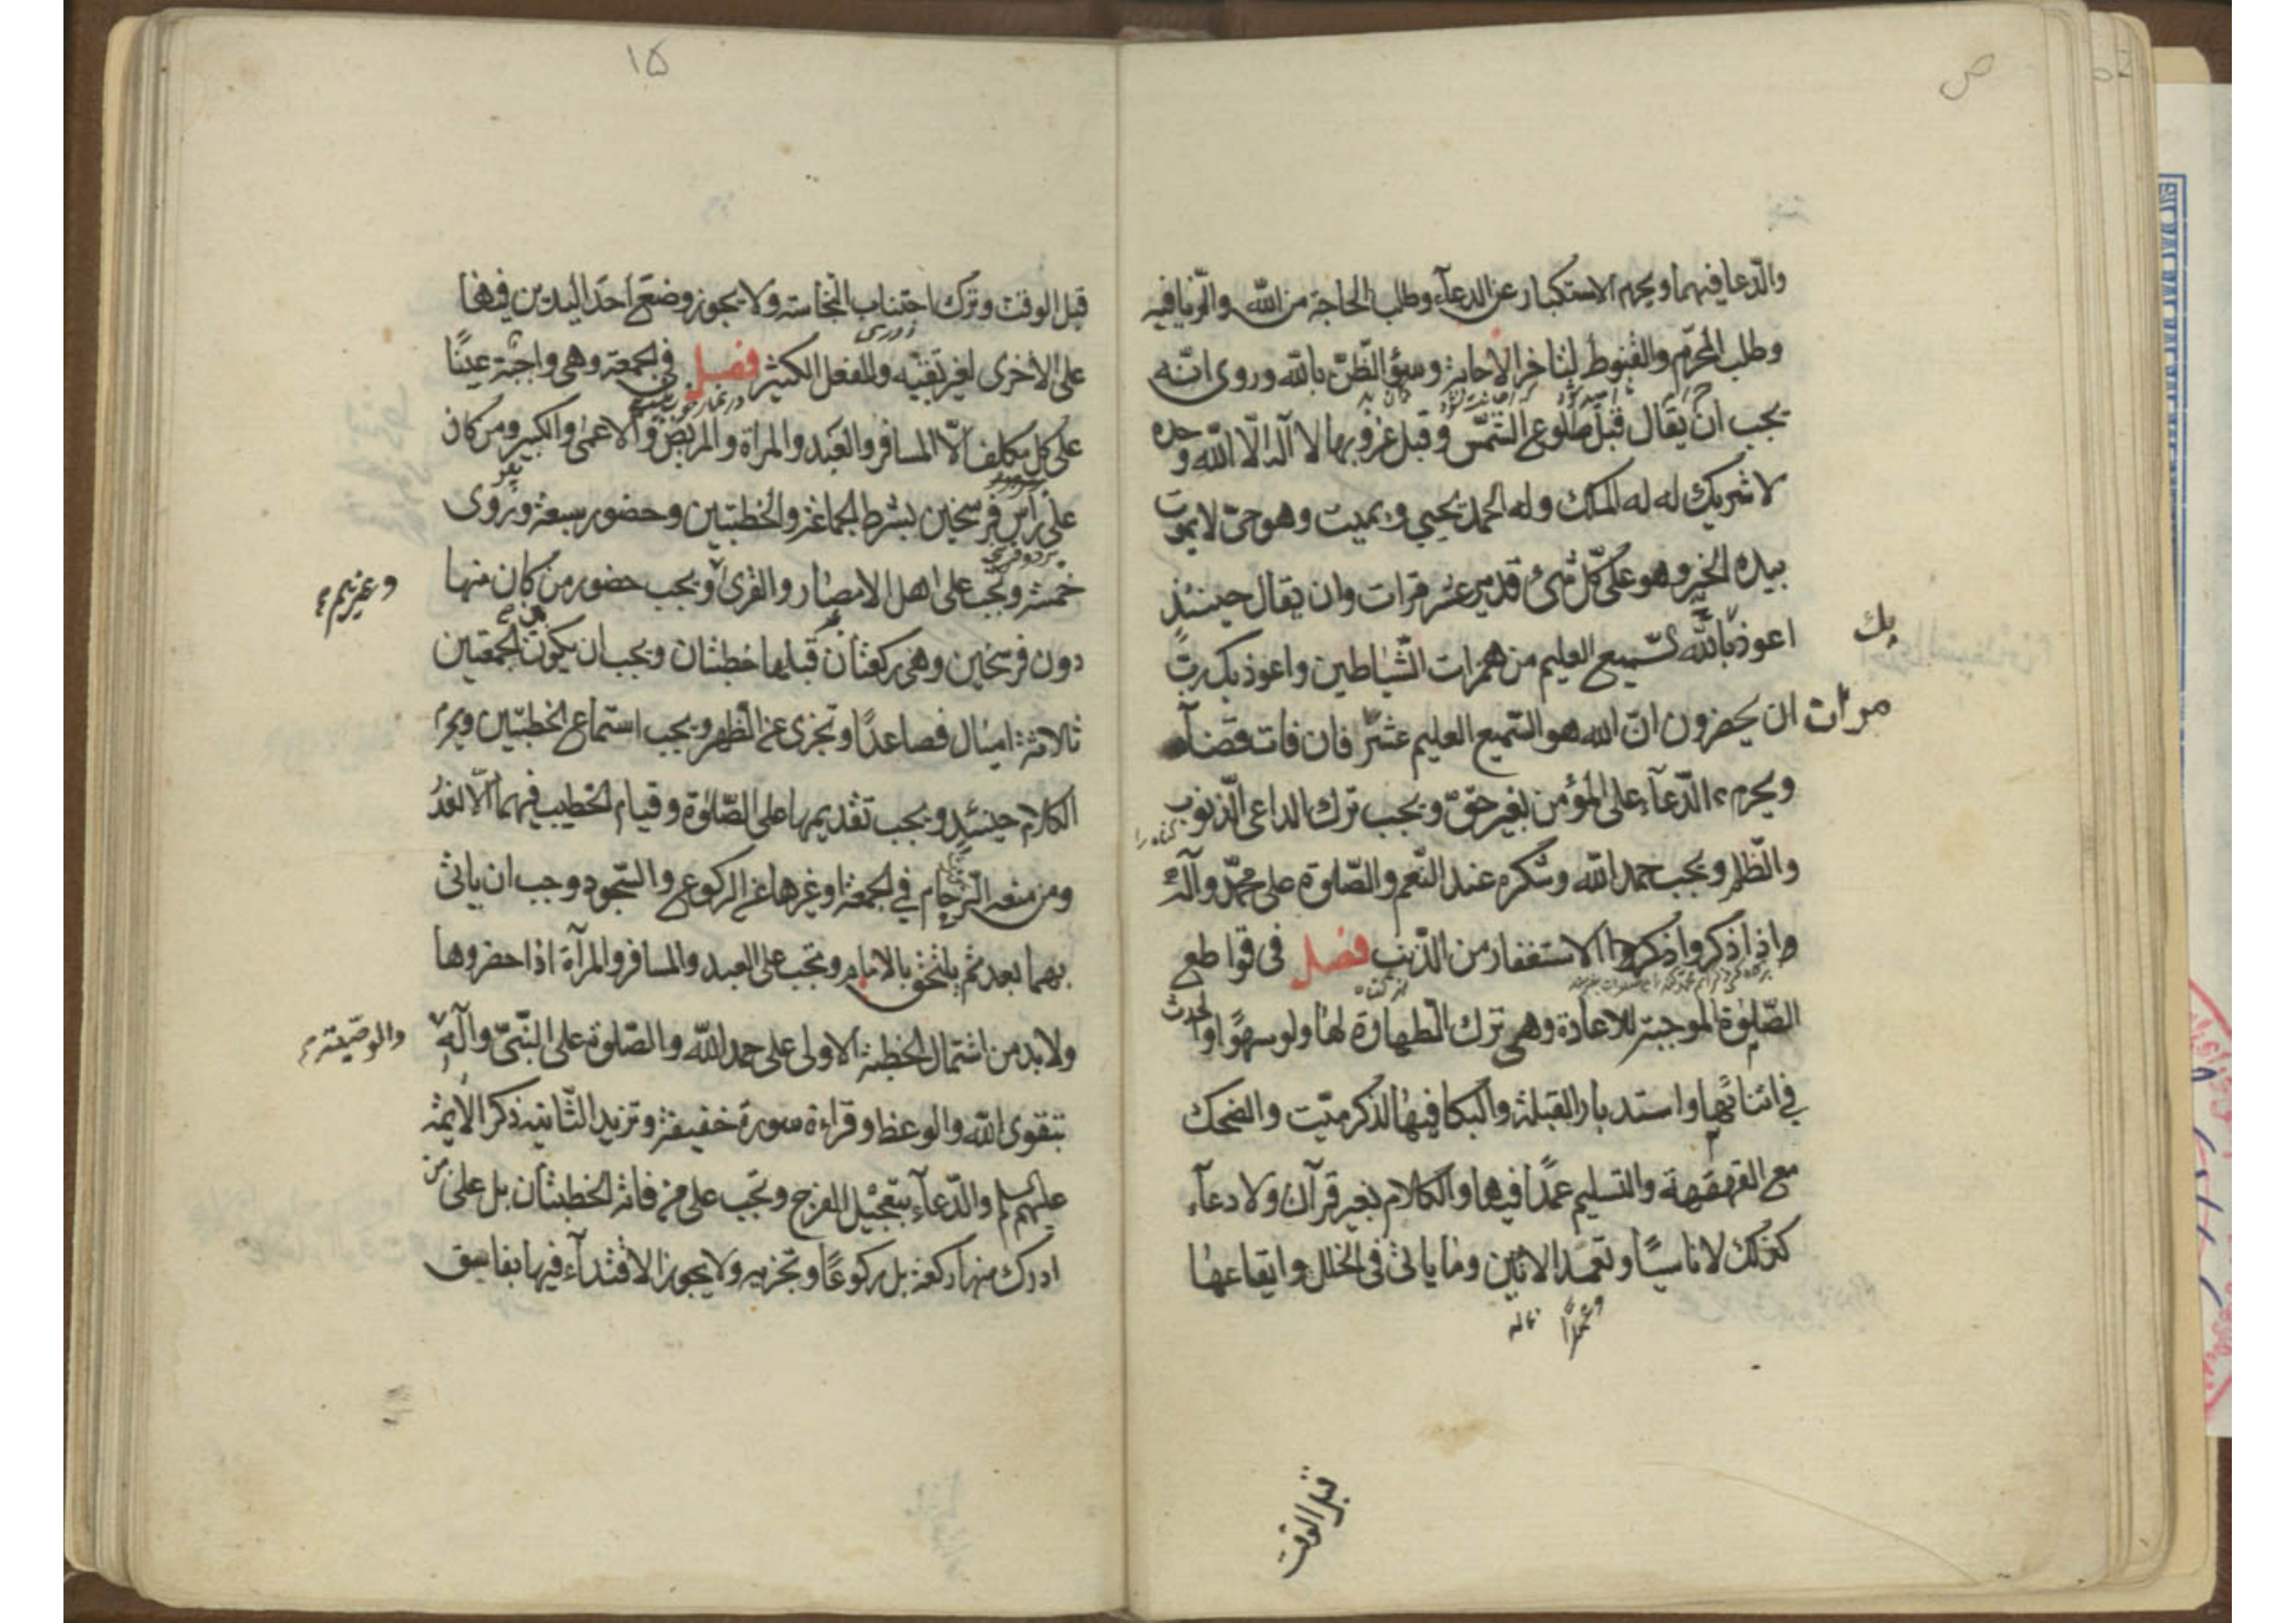 والدعا فيهما ويحرم الاستكبار عن الدعآء وطلب الحاجة من الله والريا فيه
وطلب المحرّم والقنوط لتاخر الاجابة وسوء الظنّ بالله وروى انّه
يجب ان يقال قبل طلوع الشمس وقبل غروبها لا آله الّا الله وحده
لا شريك له له الملك وله الحمد يحيي ويميت وهو حىّ لا يموت
بيده الخير وهو على كلّ شىء قدير عشر مرات وان يقال حينئذ
اعوذ بالله السّميع العليم من همزات الشّياطين واعوذ بك ربّ
بك
ان يحضرون انّ الله هو السّميع العليم عشر فان فات قضاه
مرات
ويحرم الدّعآء على المؤمن بغير حقّ ويجب ترك الداعى الذنوب
والظلم ويجب حمد الله وشكره عند النّعم والصّلوة على محمّد وآله
واذا ذكر واذكروا الاستغفار من الذّنب فصل فى قواطع
الصّلوة الموجبة للاعادة وهى ترك الطهارة لها ولو سهوًا والحدث
في اثنائها واستدبار القبلة والبكا فيها لذكر ميّت والضحك
مع القهقهة والتسليم عمدًا فيها والكلام بغير قرآن ولا دعآء
كذلك لا ناسيًا وتعمد الانين وما ياتى فى الخلل وايقاعها
قبل الوقت
١٥
قبل الوقت وترك اجتناب النجاسة ولا يجوز وضع احد اليدين فيها
على الاخرى لغير تقيّة والفعل الكثير فصل فى الجمعة وهى واجبة عينًا
على كل مكلف الّا المسافر والعبد والمراة والمريض والاعمى والكبير ومن كان
على راس فرسخين بشرط الجماعة والخطبتين وحضور سبعة وروى
خمسة وتجب على اهل الامصار والقرى ويجب حضور من كان منها
وغيرهم
دون فرسخين وهى ركعتان قبلها خطبتان ويجب ان يكون بين الجمعتين
ثلاثة اميال فصاعدًا وتجزى عن الظهر ويجب استماع الخطبتين ويحرم
الكلام حينئذ ويجب تقديمها على الصّلوة وقيام الخطيب فيهما الّا لعذر
ومن منعه الزحام في الجمعة او غيرها عن الركوع والسّجود وجب ان ياتى
بهما بعد ثم يلتحق بالامام وتجب على العبد والمسافر والمرآة اذا حضروها
ولا بد من اشتمال الخطبة الاولى على حمد الله والصّلوة على النّبىّ وآله
والوصيّة
بتقوى الله والوعظ وقراءة سورة خفيفة وتزيد الثّانية ذكر الأيمة
عليهم السلم والدّعآء بتعجيل الفرج وتجب على من فاته الخطبتان بل على من
ادرك منها ركعة بل ركوعًا وتجزيه ولا يجوز الاقتدآء فيها بفاسق